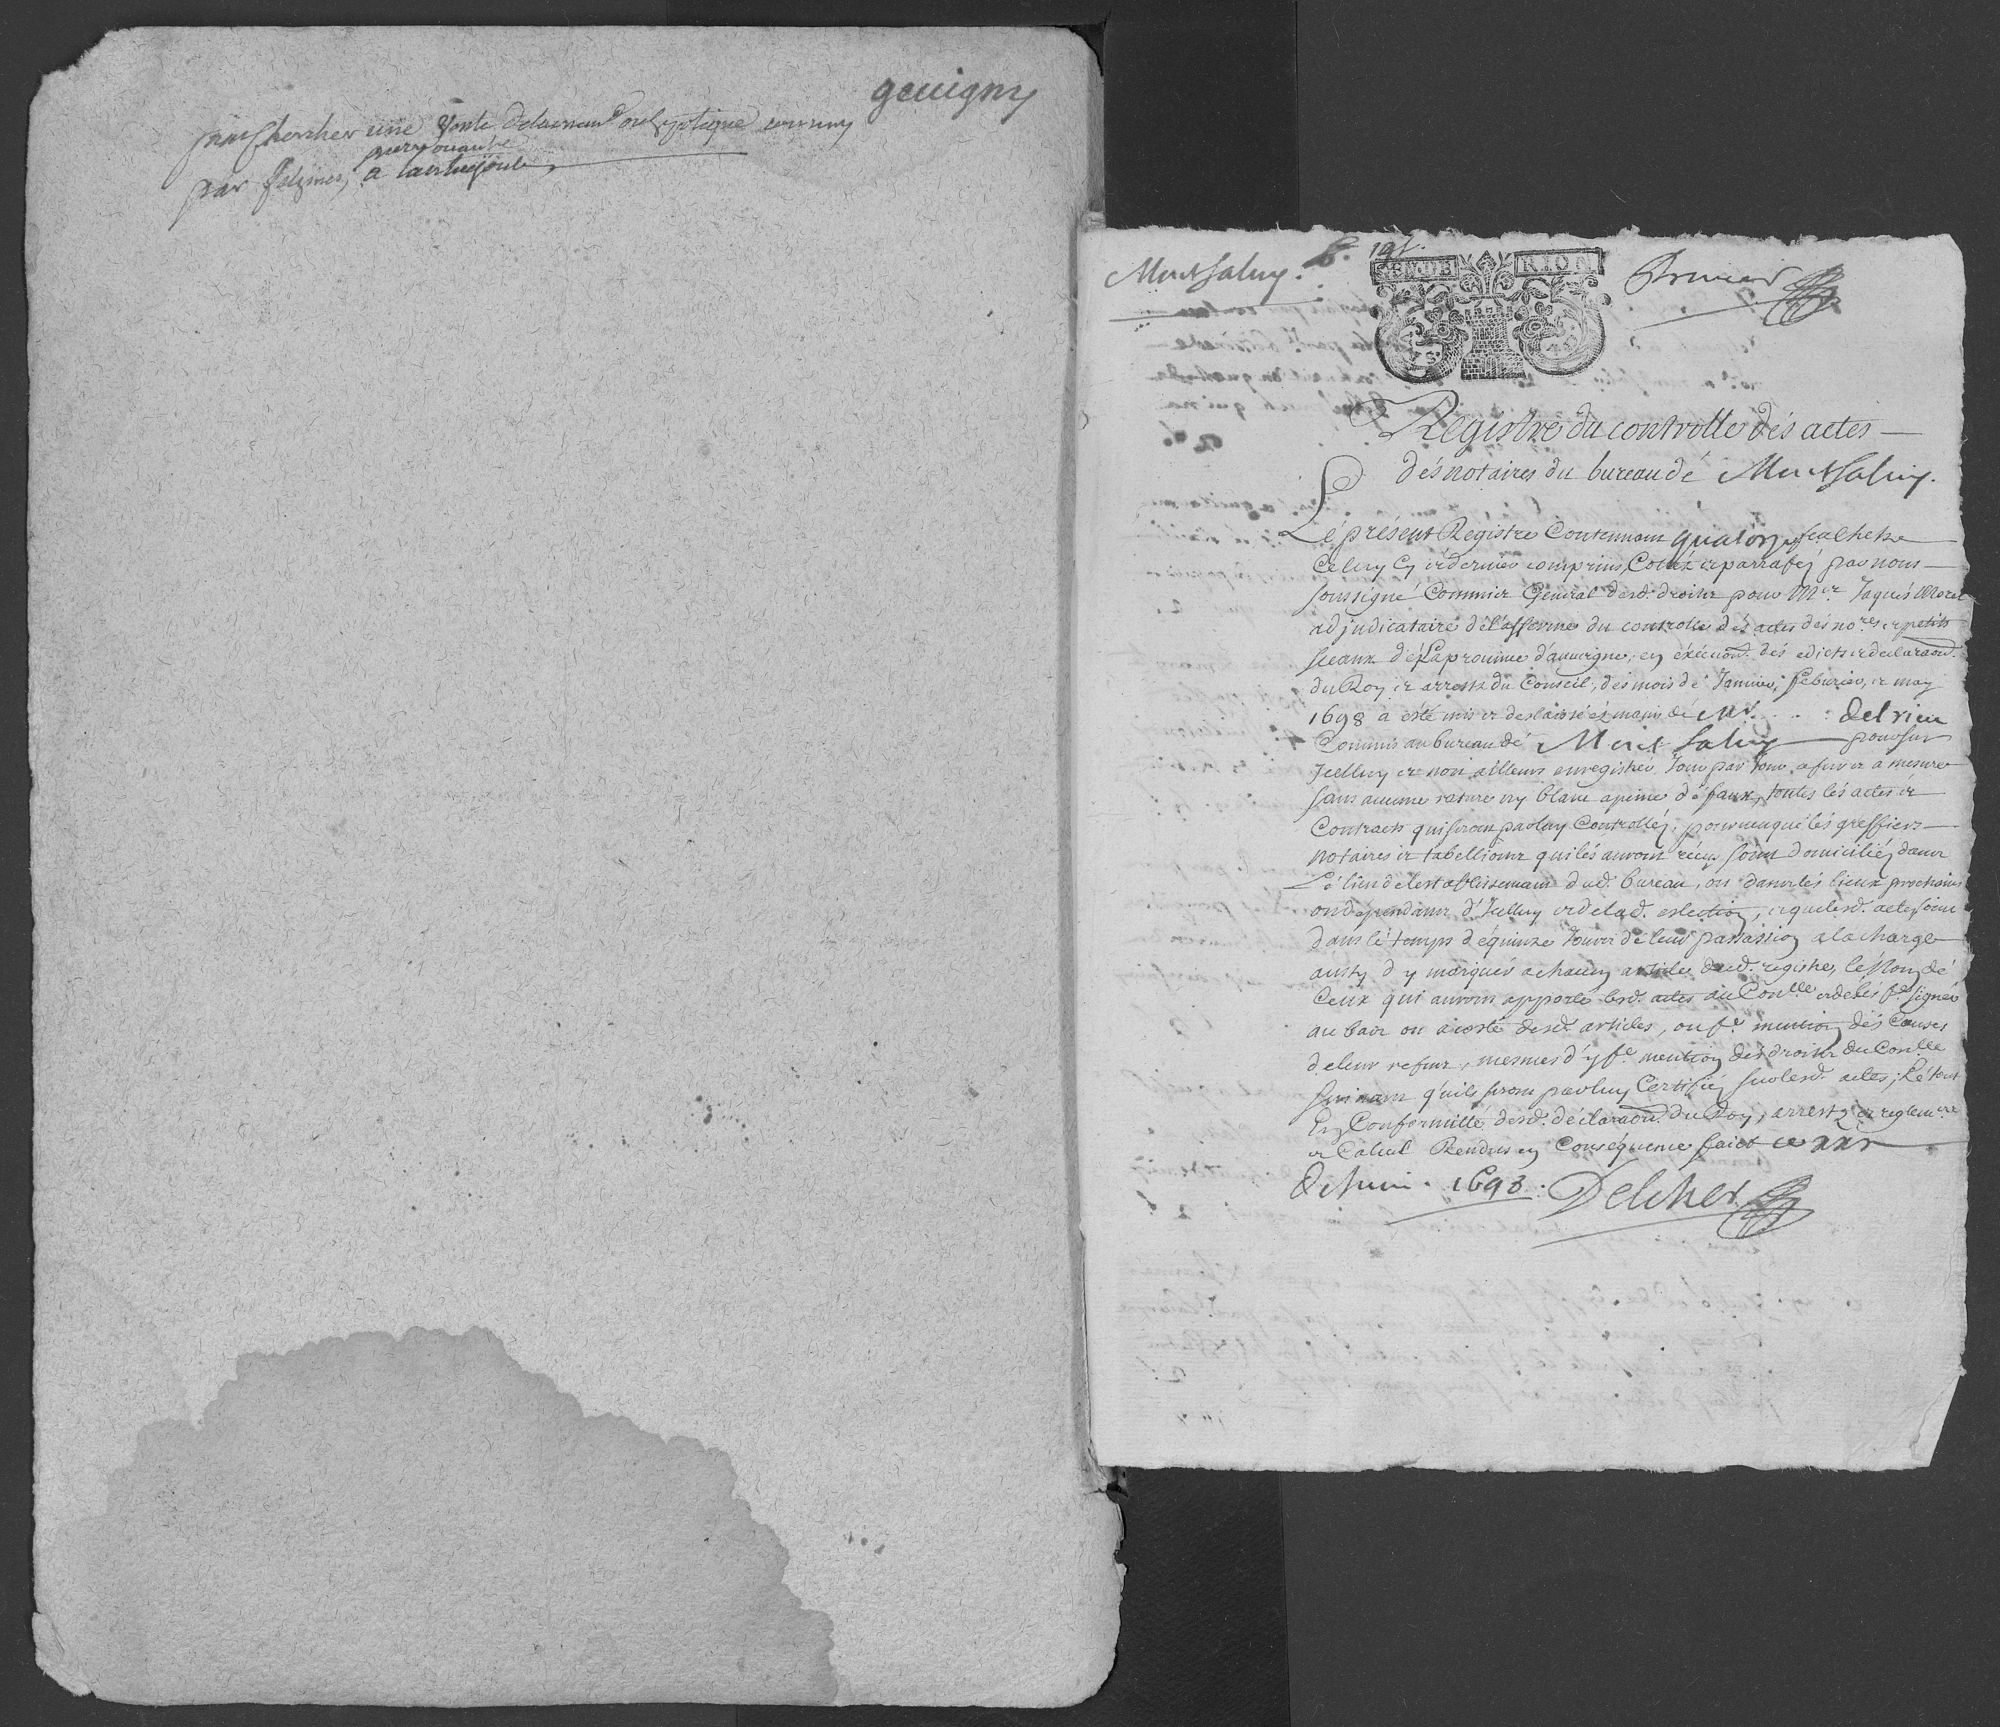 gevigny
par
Montsaluy.
GEN. DE RION
Registre du controlle dés actes
dés notaires du bureau dé Montsaluy.
Lé présent Registre Contenant quatorze
Celuy cy et dernier comprins, Cotté et parrafé par nous
soussigné Commier Général desd. droits pour Mre Jaqués Morel
adjudicataire dé l'afferme du controlle dés actes des nores et petits
sceaux dé la province d'auvergne, en éxécuon. dés edicts et declaraon.
du Roy et arrests du Conseil, des mois dé Janvier, feburier, et may
1698 a esté mis et deslaissé és mains dé Mr. delrieu
Commis au bureau dé Montsaluy pour sur
Icelluy et non ailleurs enregistrer Jour par Jour a fur et a mesure
sans aucune rature ny blanc a peine dé faux, toutes lés actes et
Contracts qui seront par luy Controllés, pourveu que lés greffiers
notaires et tabellions qui lés auront réceu soint domiciliés dans
Lé lieu de lestablissemant dud. bureau, ou dans lés lieux prochains
ou dependans d'Icelluy et de lad. eslection, et que lesd. actes soint
dans lé temps dé quinze Jours dé leur passassion a la charge
aussy d'y marquer a chacun article dud. registre, lé Nom dé
Ceux qui auront apporté lesd. actes au Conlle et de lés fe signer
au bas ou a costé desd. articles, ou fe mention dés Causes
de leur refus, mesmes d'y fe mention des droits du Conlle
suivant qu'ils seront par luy Certifié sur lesd. actes; Lé tout
En Conformitté desd. déclaraon. du Roy, arrests et reglemts
et Rendus en Conséquence faict ce xxv
de Juin. 1698. Delchet